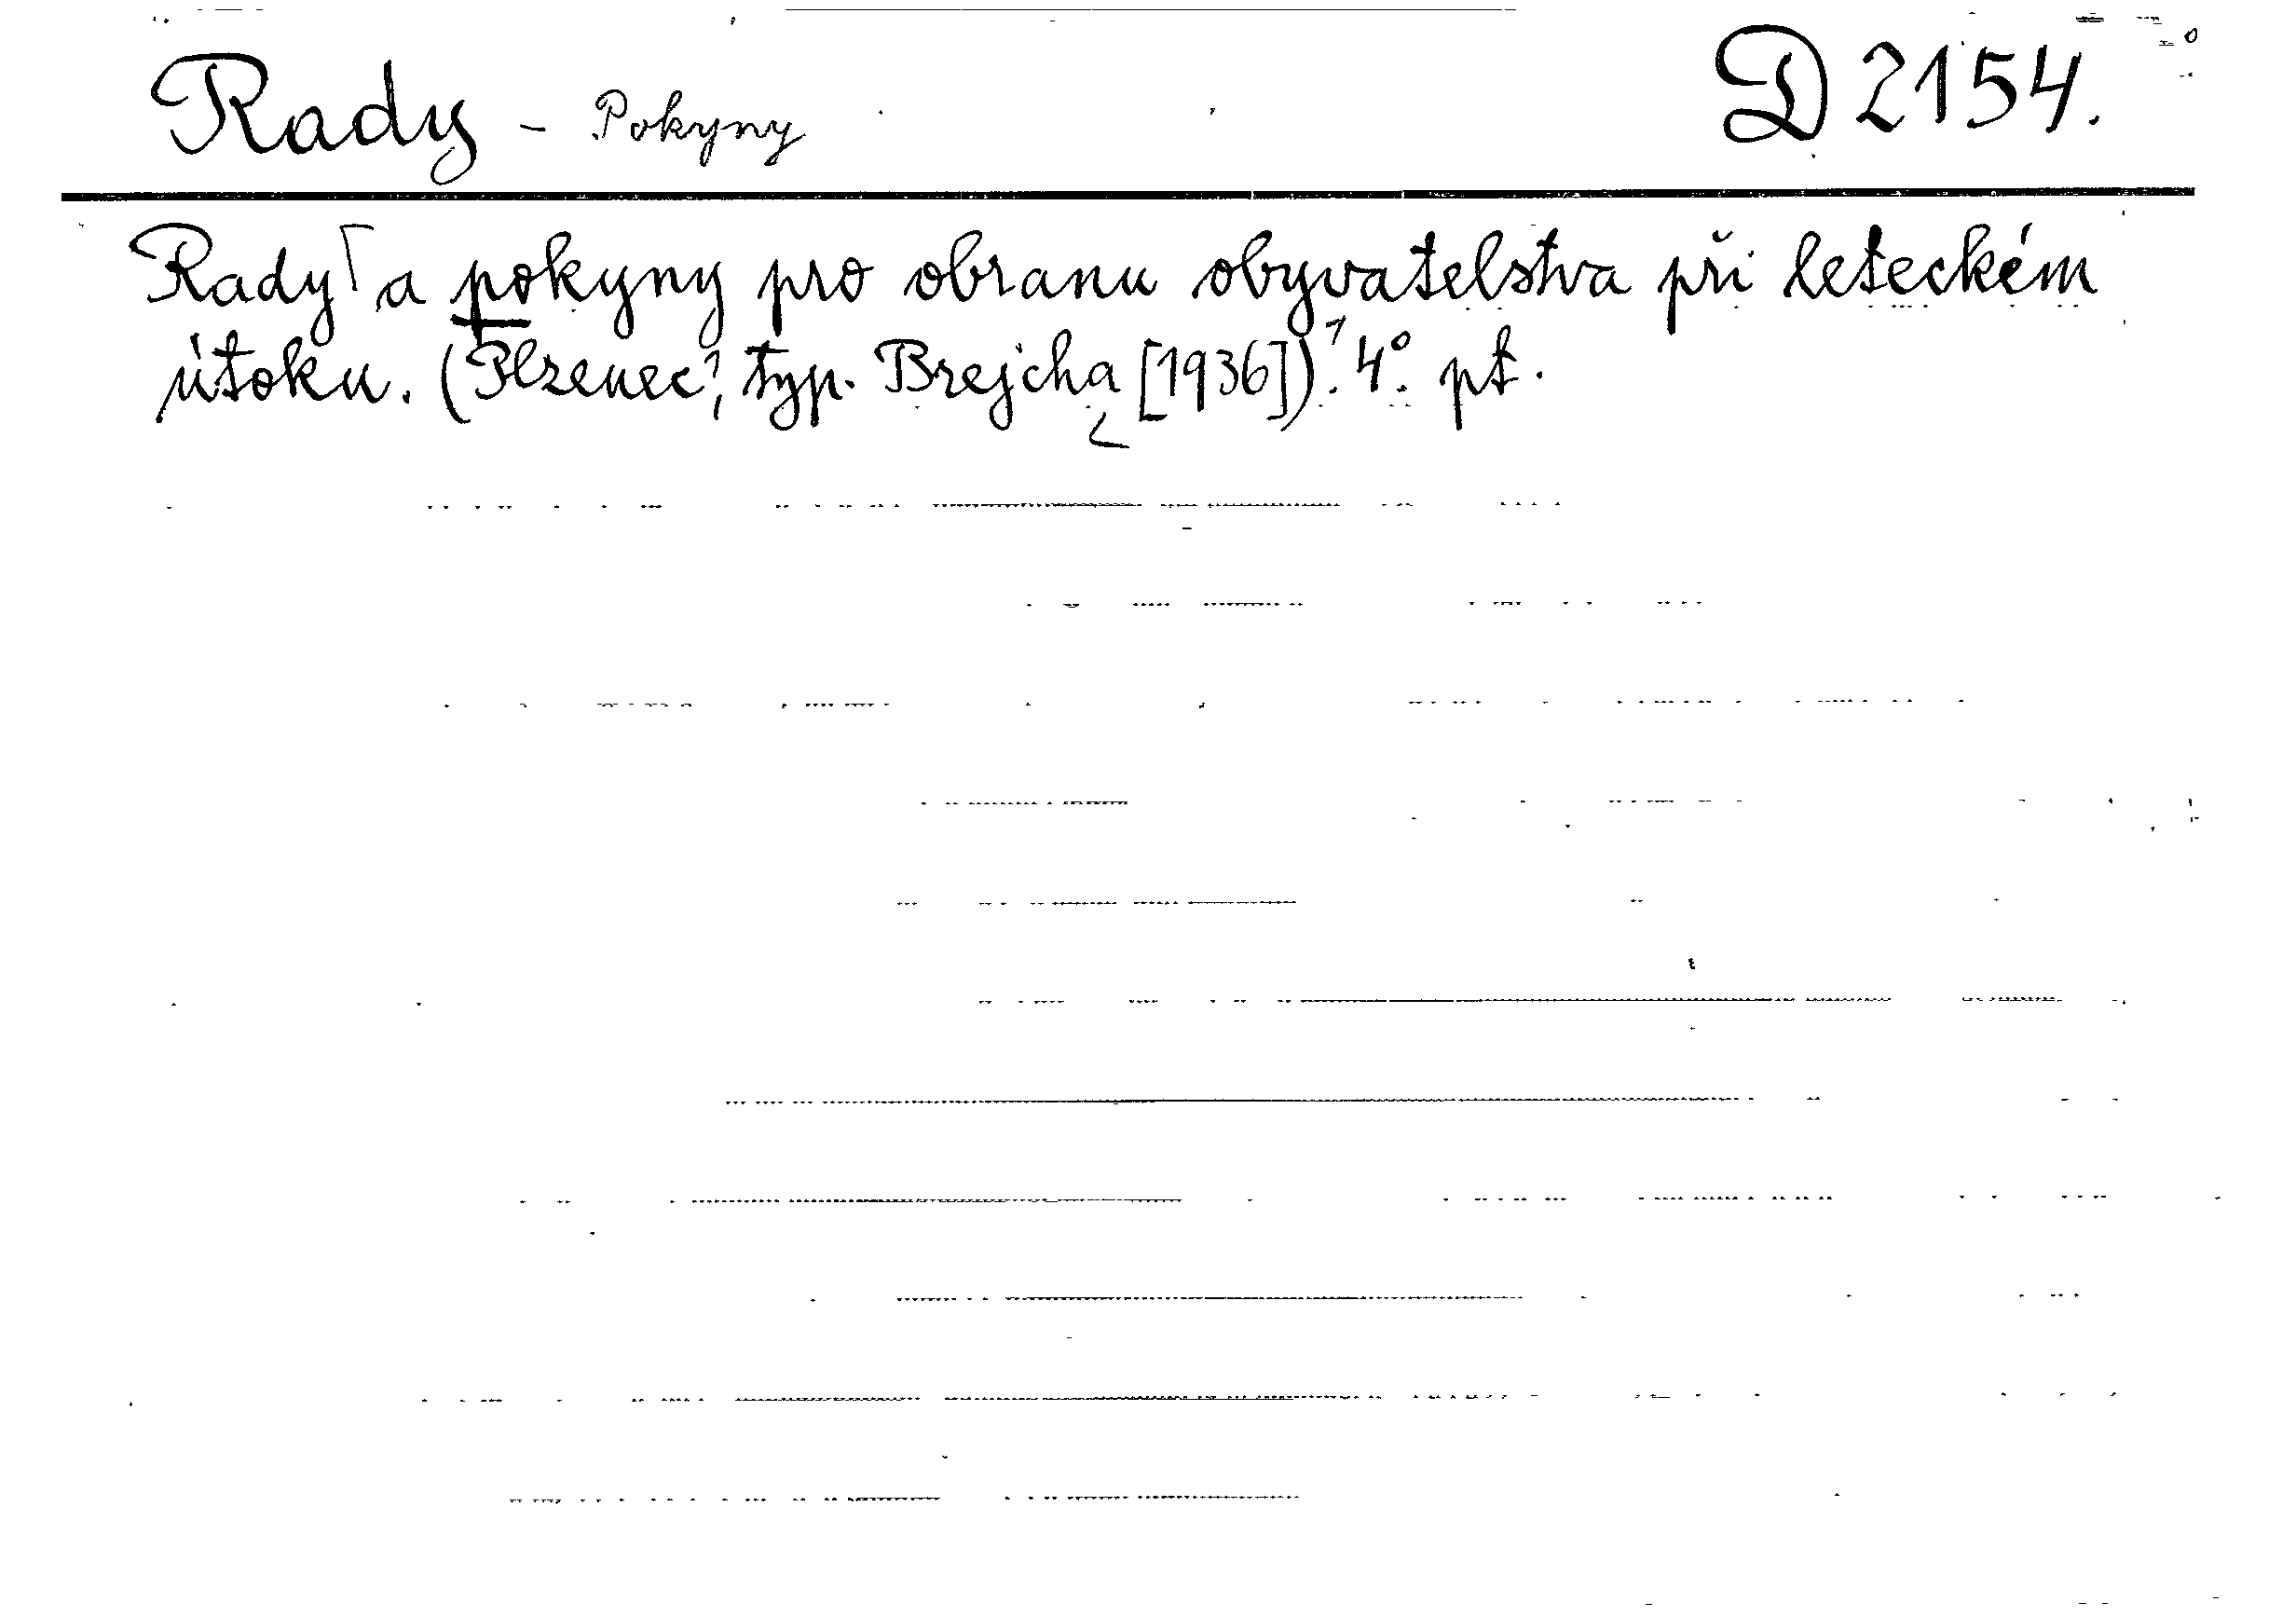 Rady - Pokyny D 2154.
Rady a pokyny pro obranu obyvatelstva při leteckém
útoku. (Plzenec?, typ. Brejcha [1936]). 4°. pt.